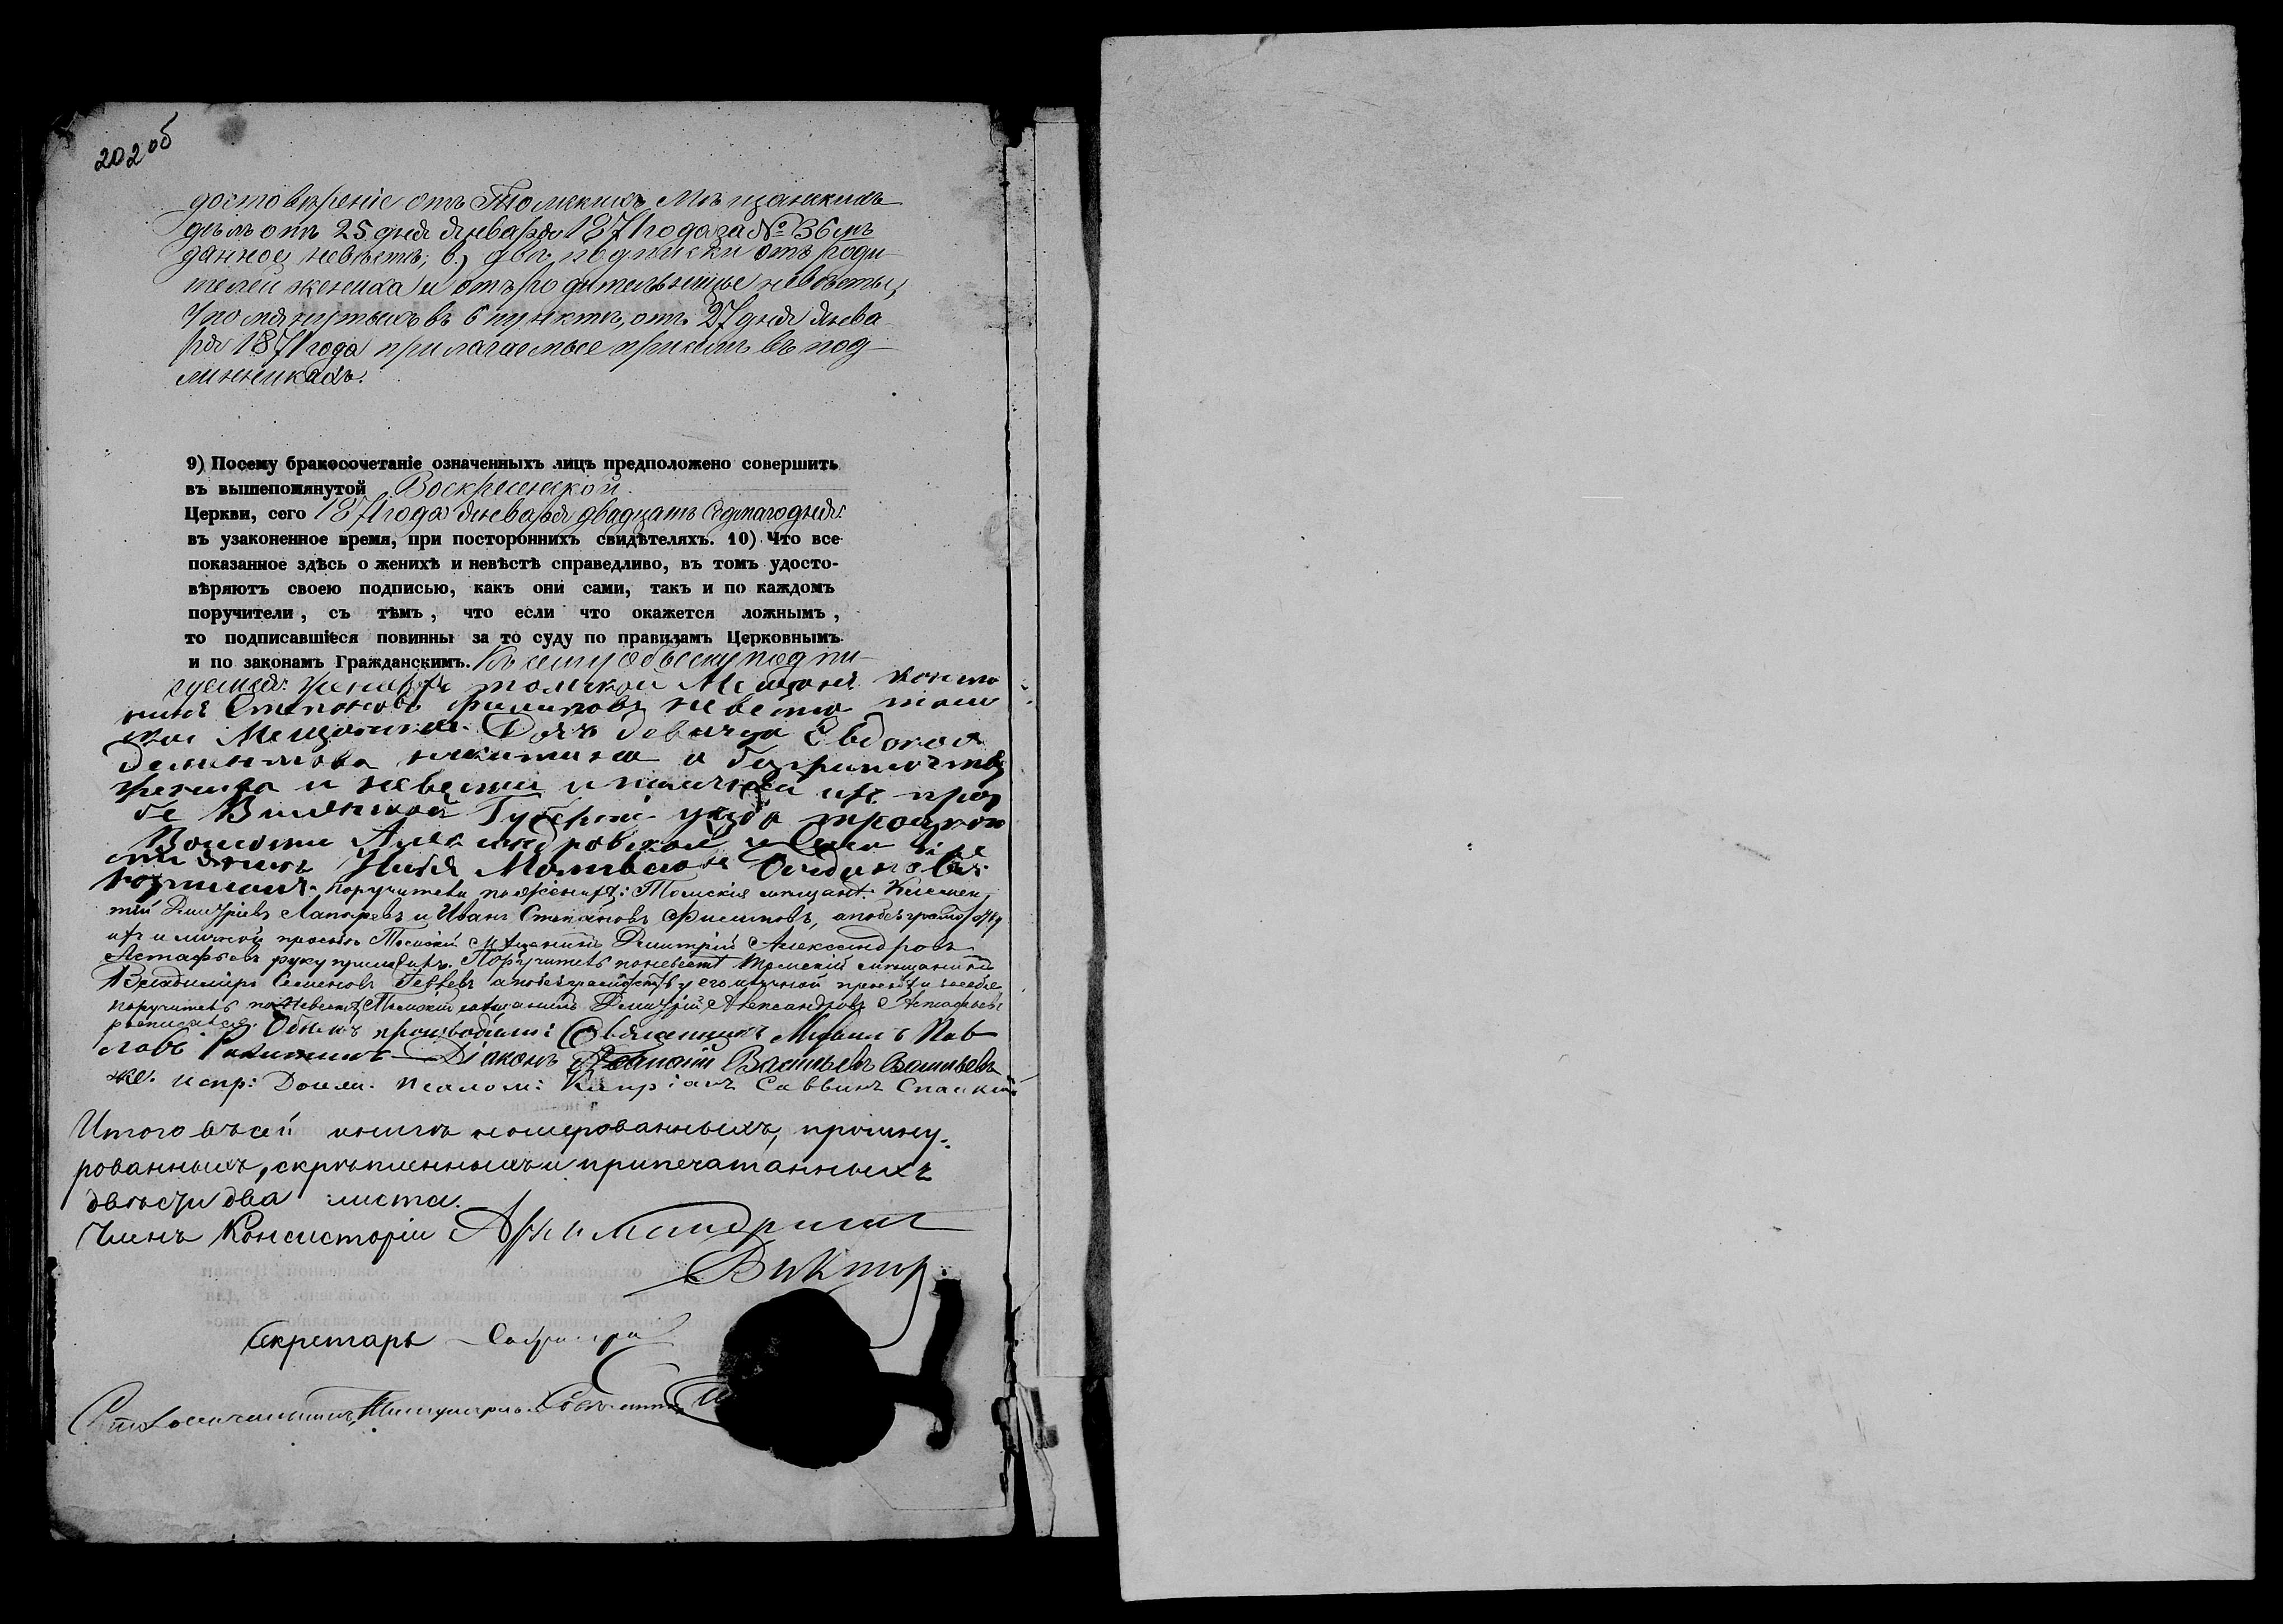 202 об
достовѣреніе отъ Томскихъ Мѣщанскихъ
дѣлъ отъ 25 дня Января 1871 года за № 36 мъ
данное невѣстѣ; в) двѣ подписки отъ роди
телей жениха и отъ родительницы невѣсты,
упомянутыхъ въ 6 пунктѣ, отъ 27 дня Янва
ря 1871 года прилагаемые при семъ въ под-
линникахъ.
9) Посему бракосочетаніе означенныхъ лицъ предположено совершить
въ вышепомянутой Воскресенской
Церкви, сего 1871 года Января двадцать седьмаго дня
въ узаконенное время, при постороннихъ свидѣтеляхъ. 10) Что все
показанное здѣсь о женихѣ и невѣстѣ справедливо, въ томъ удосто-
вѣряютъ своею подписью, какъ они сами, такъ и по каждомъ
поручители, съ тѣмъ, что если что окажется ложнымъ,
то подписавшіеся повинны за то суду по правиламъ Церковнымъ
и по законамъ Гражданскимъ. Къ сему обыску подпи-
томской Мещанинъ
Степановъ Филиповъ невеста том
ская Мещанская Дочь девица Евдокея
никитина а безграмотству
жениха и невести и личной их прось
бе Виленской Губерніи уезда троцкой
Волости Александровской
Матвеювъ
поручители по женихѣ: Томскія мѣщане Климен
тій Дмитріевъ Лапыревъ и Иванъ Степановъ Филиповъ, а по безграмотству
ихъ и личной просьбѣ Томскій Мѣщанинъ Дмитрій Александровъ
Астафьевъ руку приложилъ. Поручитель по невестѣ Томскій мѣщанинъ
Владимиръ Семеновъ а по безграмотству его и личной просьбѣ и за себя
поручитель по Невестѣ Томскій мѣщанинъ Дмитрій Александровъ Астафьевъ
росписался. Обыскъ производили: Священникъ Михаилъ Пав
ловъ Діаконъ Васильевъ Васильевъ
же. испр: Долж. псалом: Кипріанъ Саввинъ Спасскій
Итого въ сей книгѣ номерованныхъ, прошну-
рованныхъ, скрѣпленныхъ и припечатанныхъ
двѣсти два листа.
Членъ Консисторіи Архимандритъ
Викторъ.
Секретарь
Столоначальникъ, Титулярный Совѣтникъ